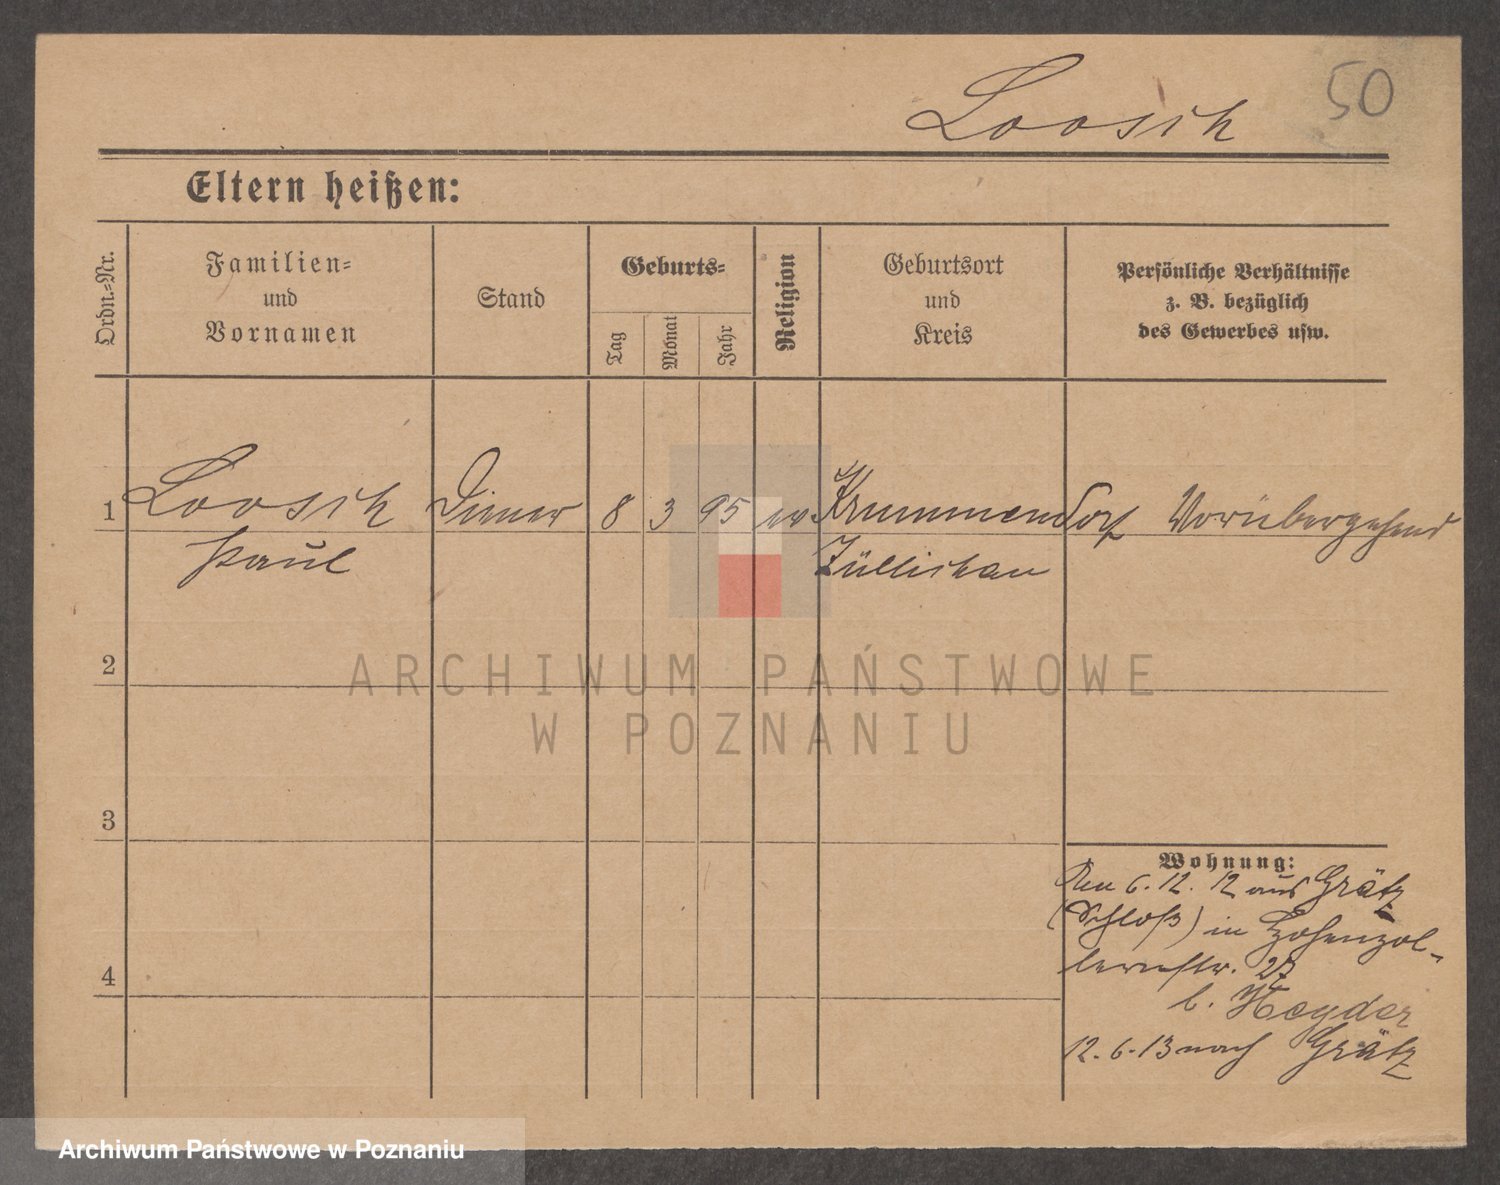 50
Loosch
Eltern heißen:
Ordn.-Nr.
Familien-
und
Vornamen
Stand
Geburts-
Tag
Monat
Jahr
Religion
Geburtsort
und
Kreis
Persönliche Verhältnisse
z. B. bezüglich
des Gewerbes usw.
1 Loosch Diener 8 3 95 ev Krummendorf Vorübergehend
Paul Züllichau
2
3
4
Wohnung:
Den 6.12.12 aus Grätz
(Schloß) in Hohenzol-
lernstr. 27
b. Heyder
12.6.13 nach Grätz
ARCHIWUM PAŃSTWOWE
W POZNANIU
Archiwum Państwowe w Poznaniu